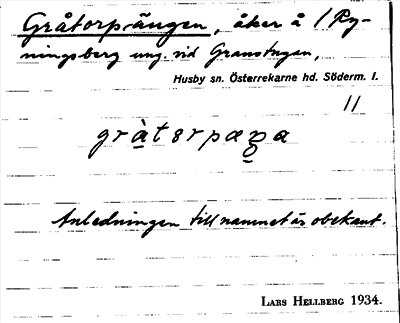 Gråtorpängen, åker å 1 Ry-
ningsberg ung. vid Granstugan,
Husby sn. Österrekarne hd. Söderm. l.
11
Anledningen till namnet är obekant.
LARS HELLBERG 1934.